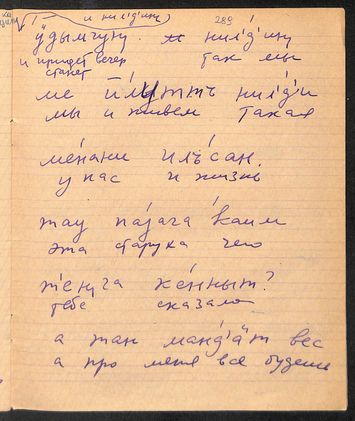 и нил'д'ину)
289
ӱдымгуну. нил'д'ину
и придет вечер так мы
станет
ме илуттъ нил'д'и
мы и живем такая
ме́нани илъ́сан.
у нас и жизнь
тау па́jага каим
эта старуха чего
же́нныт?
тебе сказала
а тан манд'а́т вес
а про меня все будешь